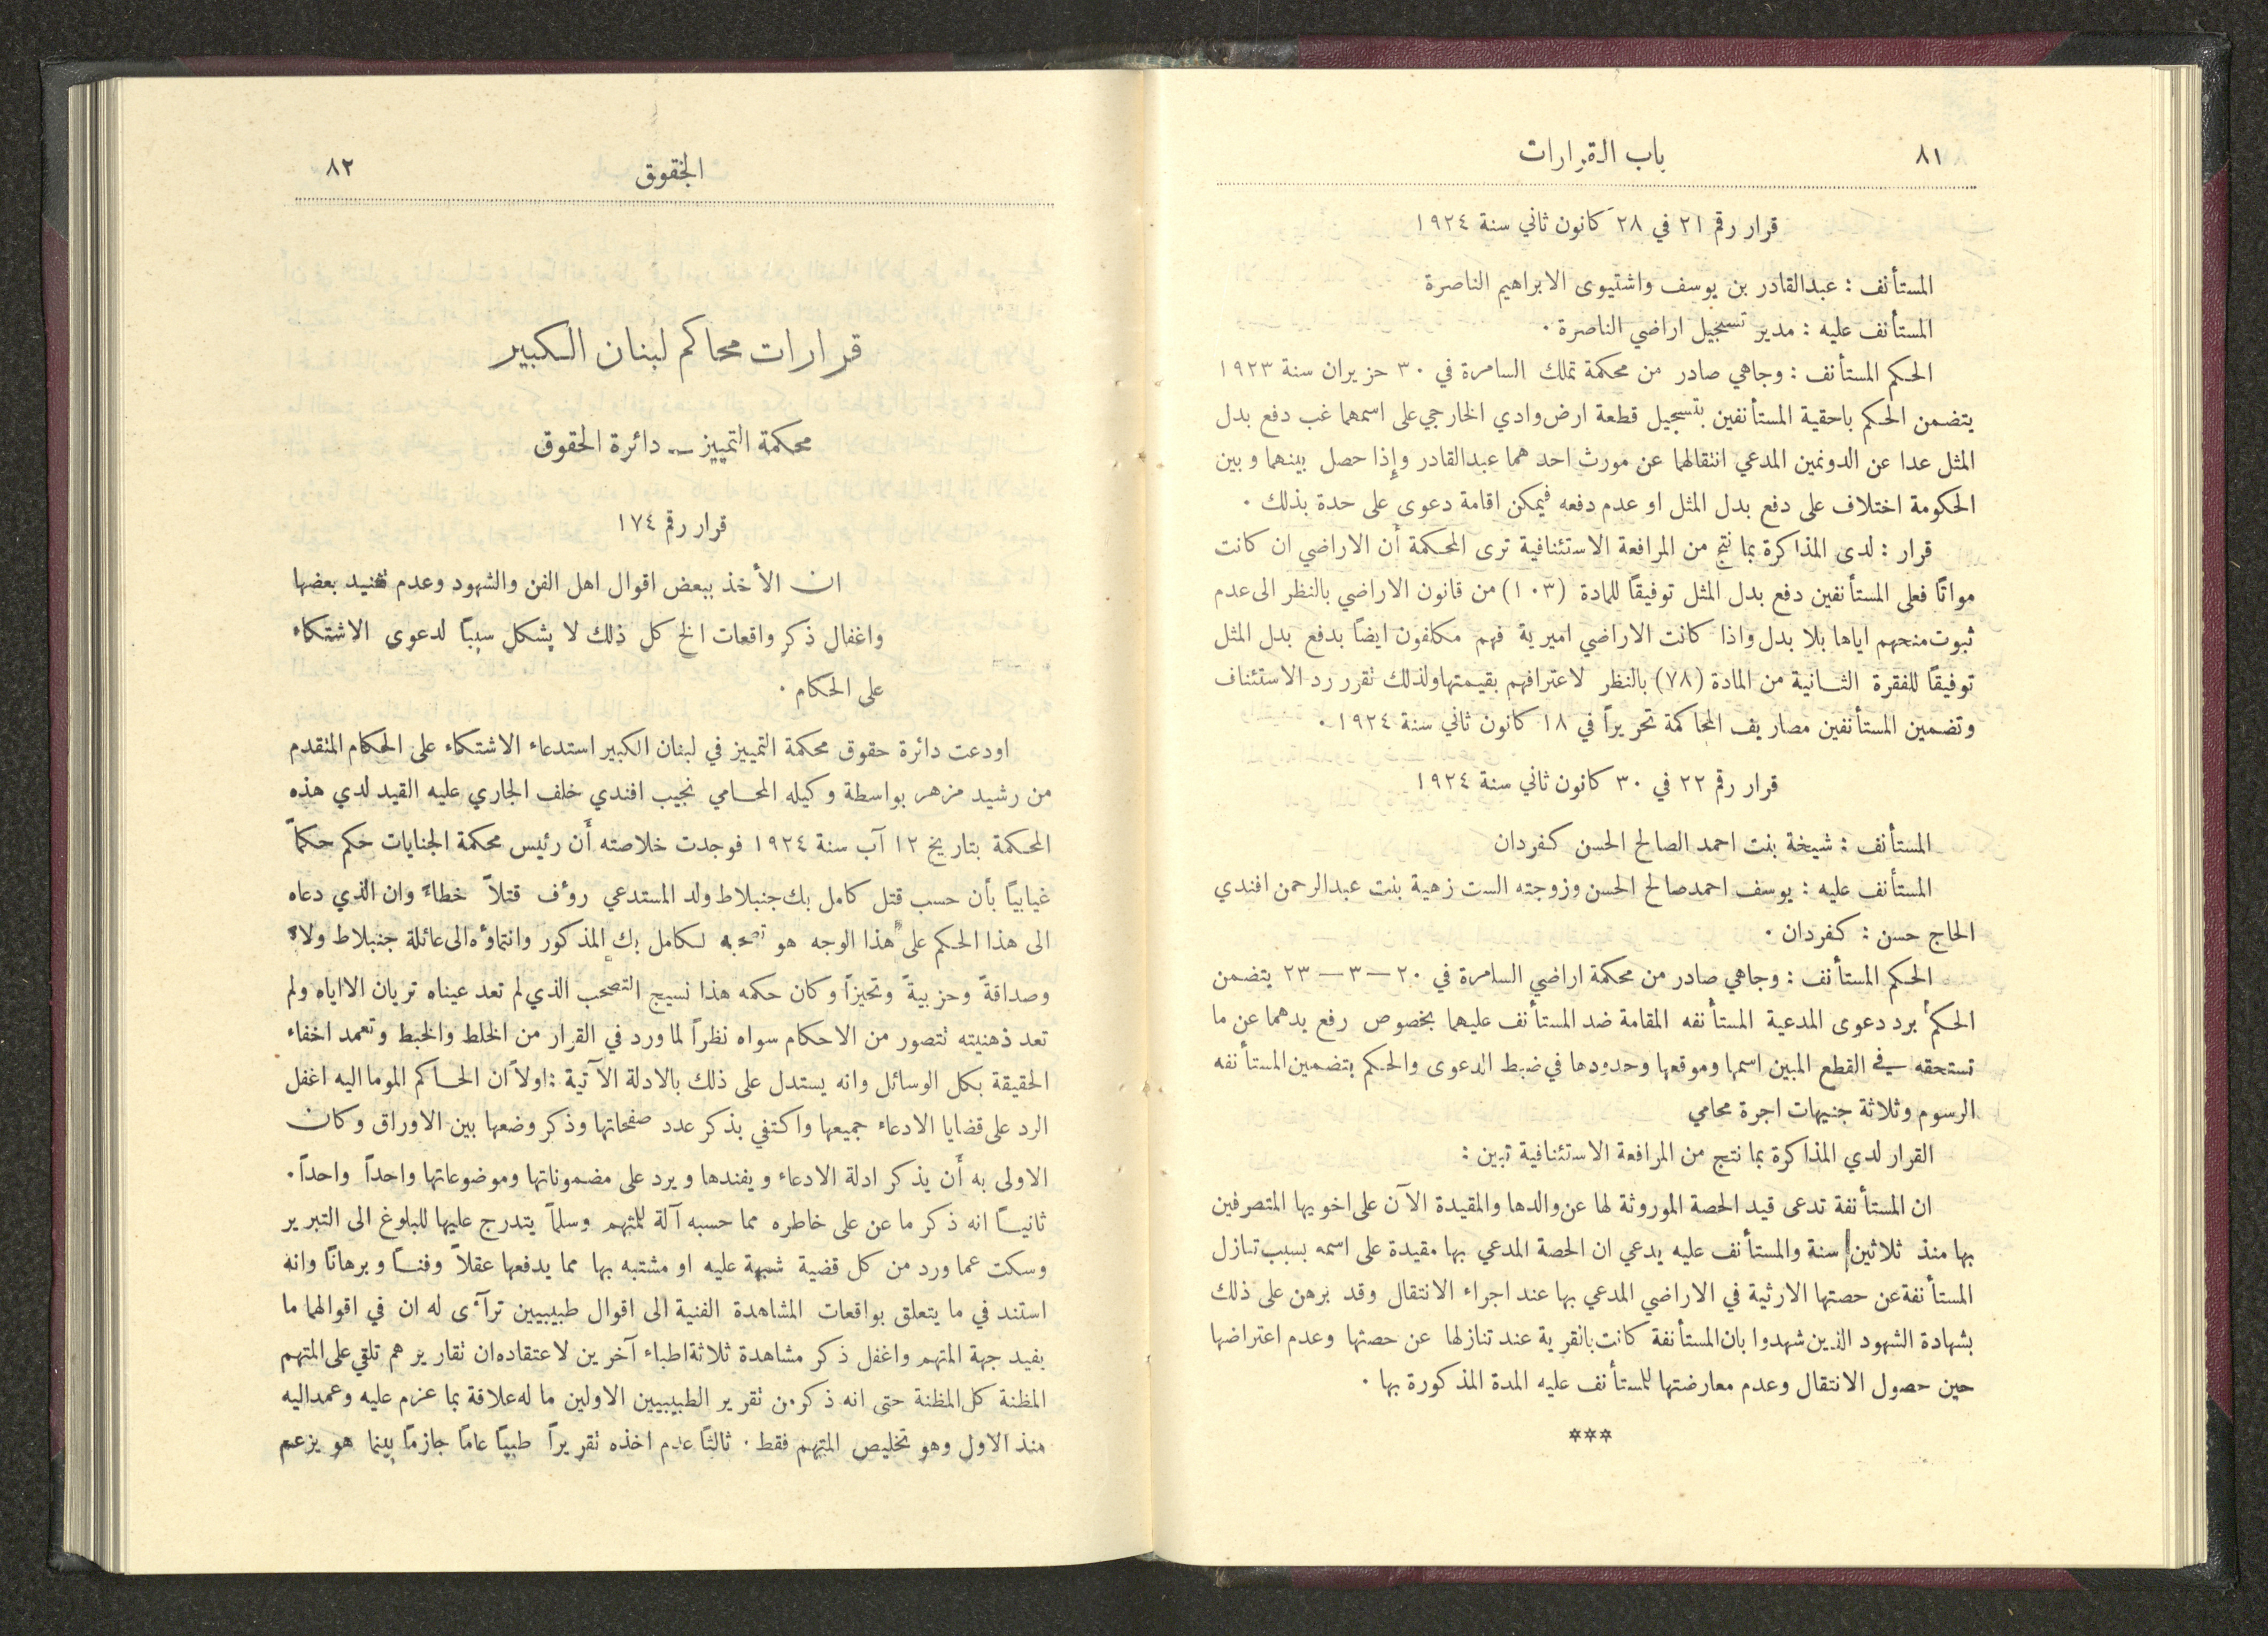 ٨١
باب القرارات
قرار رقم ٢١ في ٢٨ كانون ثاني سنة ١٩٢٤
المستأنف : عبدالقادر بن يوسف واشتيوى الابراهيم الناصرة
المستأنف عليه : مدير تسجيل اراضي الناصرة ·
الحكم المستأنف : وجاهي صادر من محكمة تملك السامرة في ٣٠ حزيران سنة ١٩٢٣
يتضمن الحكم باحقية المستأنفين بتسجيل قطعة ارض وادي الخارجي على اسمهما غب دفع بدل
المثل عدا عن الدونمين المدعي انتقالهما عن مورث احدهما عبدالقادر وإذا حصل بينهما وبين
الحكومة اختلاف على دفع بدل المثل او عدم دفعه فيمكن اقامة دعوى على حدة بذلك ·
قرار : لدى المذاكرة بما نتج من المرافعة الاستئنافية ترى المحكمة أن الاراضي ان كانت
مواتًا فعلى المستأنفين دفع بدل المثل توفيقًا للمادة (١٠٣) من قانون الاراضي بالنظر الى عدم
ثبوت منحهم اياها بلا بدل واذا كانت الاراضي اميرية فهم مكلفون ايضًا بدفع بدل المثل
توفيقًا للفقرة الثانية من المادة (٧٨) بالنظر لاعترافهم بقيمتها ولذلك تقرر رد الاستئناف
وتضمين المستأنفين مصاريف المحاكمة تحريراً في ١٨ كانون ثاني سنة ١٩٢٤ ·
قرار رقم ٢٢ في ٣٠ كانون ثاني سنة ١٩٢٤
المستأنف : شيخة بنت احمد الصالح الحسن كفردان
المستأنف عليه : يوسف احمد صالح الحسن وزوجته الست زهية بنت عبدالرحمن افندي
الحاج حسن : كفردان ·
الحكم المستأنف : وجاهي صادر من محكمة اراضي السامرة في ٢٠—٣—٢٣ يتضمن
الحكم برد دعوى المدعية المستأنفه المقامة ضد المستأنف عليهما بخصوص رفع يدهما عن ما
تستحقه في القطع المبين اسمها وموقعها وحدودها في ضبط الدعوى والحكم بتضمين المستأنفه
الرسوم وثلاثة جنيهات اجرة محامي
القرار لدي المذاكرة بما نتج من المرافعة الاستئنافية تبين :
ان المستأنفة تدعى قيد الحصة الموروثة لها عن والدها والمقيدة الآن على اخويها المتصرفين
بها منذ ثلاثين سنة والمستأنف عليه يدعي ان الحصة المدعي بها مقيدة على اسمه بسبب تنازل
المستأنفة عن حصتها الارثية في الاراضي المدعي بها عند اجراء الانتقال وقد برهن على ذلك
بشهادة الشهود الذين شهدوا بان المستأنفة كانت بالقرية عند تنازلها عن حصتها وعدم اعتراضها
حين حصول الانتقال وعدم معارضتها للمستأنف عليه المدة المذكورة بها ·
***
الحقوق
٨٢
قرارات محاكم لبنان الكبير
محكمة التمييز — دائرة الحقوق
قرار رقم ١٧٤
ان الأخذ ببعض اقوال اهل الفن والشهود وعدم تفنيد بعضها
واغفال ذكر واقعات الخ كل ذلك لا يشكل سببًا لدعوى الاشتكاء
على الحكام ·
اودعت دائرة حقوق محكمة التمييز في لبنان الكبير استدعاء الاشتكاء على الحكام المتقدم
من رشيد مزهر بواسطة وكيله المحامي نجيب افندي خلف الجاري عليه القيد لدي هذه
المحكمة بتاريخ ١٢ آب سنة ١٩٢٤ فوجدت خلاصته أن رئيس محكمة الجنايات حكم حكماً
غيابيًا بأن حسب قتل كامل بك جنبلاط ولد المستدعي رؤف قتلاً خطاءً وان الذي دعاه
الى هذا الحكم على هذا الوجه هو تصحبه لكامل بك المذكور وانتماؤه الى عائلة جنبلاط ولاءً
وصداقةً وحزبيةً وتحيزاً وكان حكمه هذا نسيج التصحب الذي لم تعد عيناه تريان الااياه ولم
تعد ذهنيته تتصور من الاحكام سواه نظراً لما ورد في القرار من الخلط والخبط وتعمد اخفاء
الحقيقة بكل الوسائل وانه يستدل على ذلك بالادلة الآتية : اولاً ان الحاكم الموما اليه اغفل
الرد على قضايا الادعاء جميعها واكتفي بذكر عدد صفحاتها وذكر وضعها بين الاوراق وكان
الاولى به أن يذكر ادلة الادعاء ويفندها ويرد على مضموناتها وموضوعاتها واحداً واحداً ·
ثانيًا انه ذكر ما عن على خاطره مما حسبه آلة للمتهم وسلماً يتدرج عليها للبلوغ الى التبرير
وسكت عما ورد من كل قضية شبهة عليه او مشتبه بها مما يدفعها عقلاً وفنًا وبرهانًا وانه
استند في ما يتعلق بواقعات المشاهدة الفنية الى اقوال طبيبيين ترآءى له ان في اقوالهما ما
يفيد جهة المتهم واغفل ذكر مشاهدة ثلاثة اطباء آخرين لاعتقاده ان تقاريرهم تلقي على المتهم
المظنة كل المظنة حتى انه ذكر من تقرير الطبيبيين الاولين ما له علاقة بما عزم عليه وعمد اليه
منذ الاول وهو تخليص المتهم فقط · ثالثًا عدم اخذه تقريراً طبيًا عامًا جازمًا بينما هو يزعم